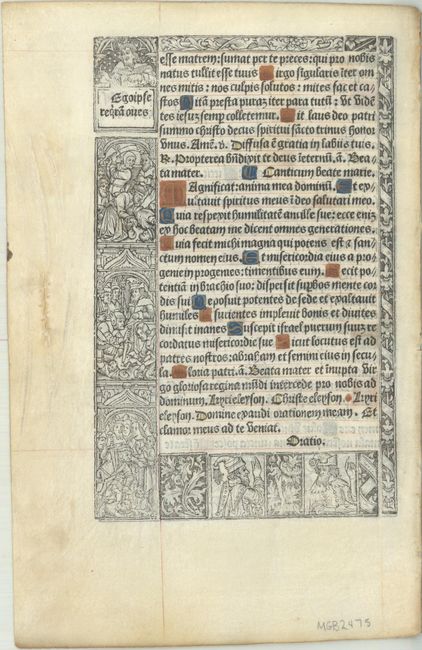 Ego ipse
reqrã oves
esse matrem: sumat per te preces: qui pro nobis
natus tullit esse tuus Virgo singularis iter om
nes mitis: nos culpis solutos: mites fac et ca-
stos Vitã presta puraz iter para tutũ: Vt vidẽ
tes iesuz semp colletemur. Sit laus deo patri
summo christo decus spiritui sãcto trinus honor
vnus. Amẽ. v. Diffusa ẽ gratia in labiis tuis.
R. Propterea bñdixit te deus ĩ eternũ. a. Bea
ta mater. Canticum beate marie.
Magnificat: anima mea dominũ. Et ex-
ultauit spiritus meus ĩ deo salutari meo.
Quia respexit humilitatẽ ancille sue: ecce eniz
ex hoc beatam me dicent omnes generationes.
Quia fecit michi magna qui potens est & san-
ctum nomen eius. Et misericordia eius a pro-
genie in progenies: timentibus eum. Fecit po-
tentiã in brachio suo: dispersit supbos mente cor
dis sui Deposuit potentes de sede et exaltauit
humiles Esurientes impleuit bonis et diuites
dimisit inanes Suscepit israel puerum suuz re
cordatus misericordie sue Sicut locutus est ad
patres nostros: abraham et semini eius in secu
la. Gloria patri. a. Beata mater et inupta vir
go gloriosa regina mũdi intercede pro nobis ad
dominum. Kyrieleyson. Christe eleyson. Kyri
eleyson. Domine exaudi orationem meam. Et
clamor meus ad te veniat.
Oratio.
MGB2475